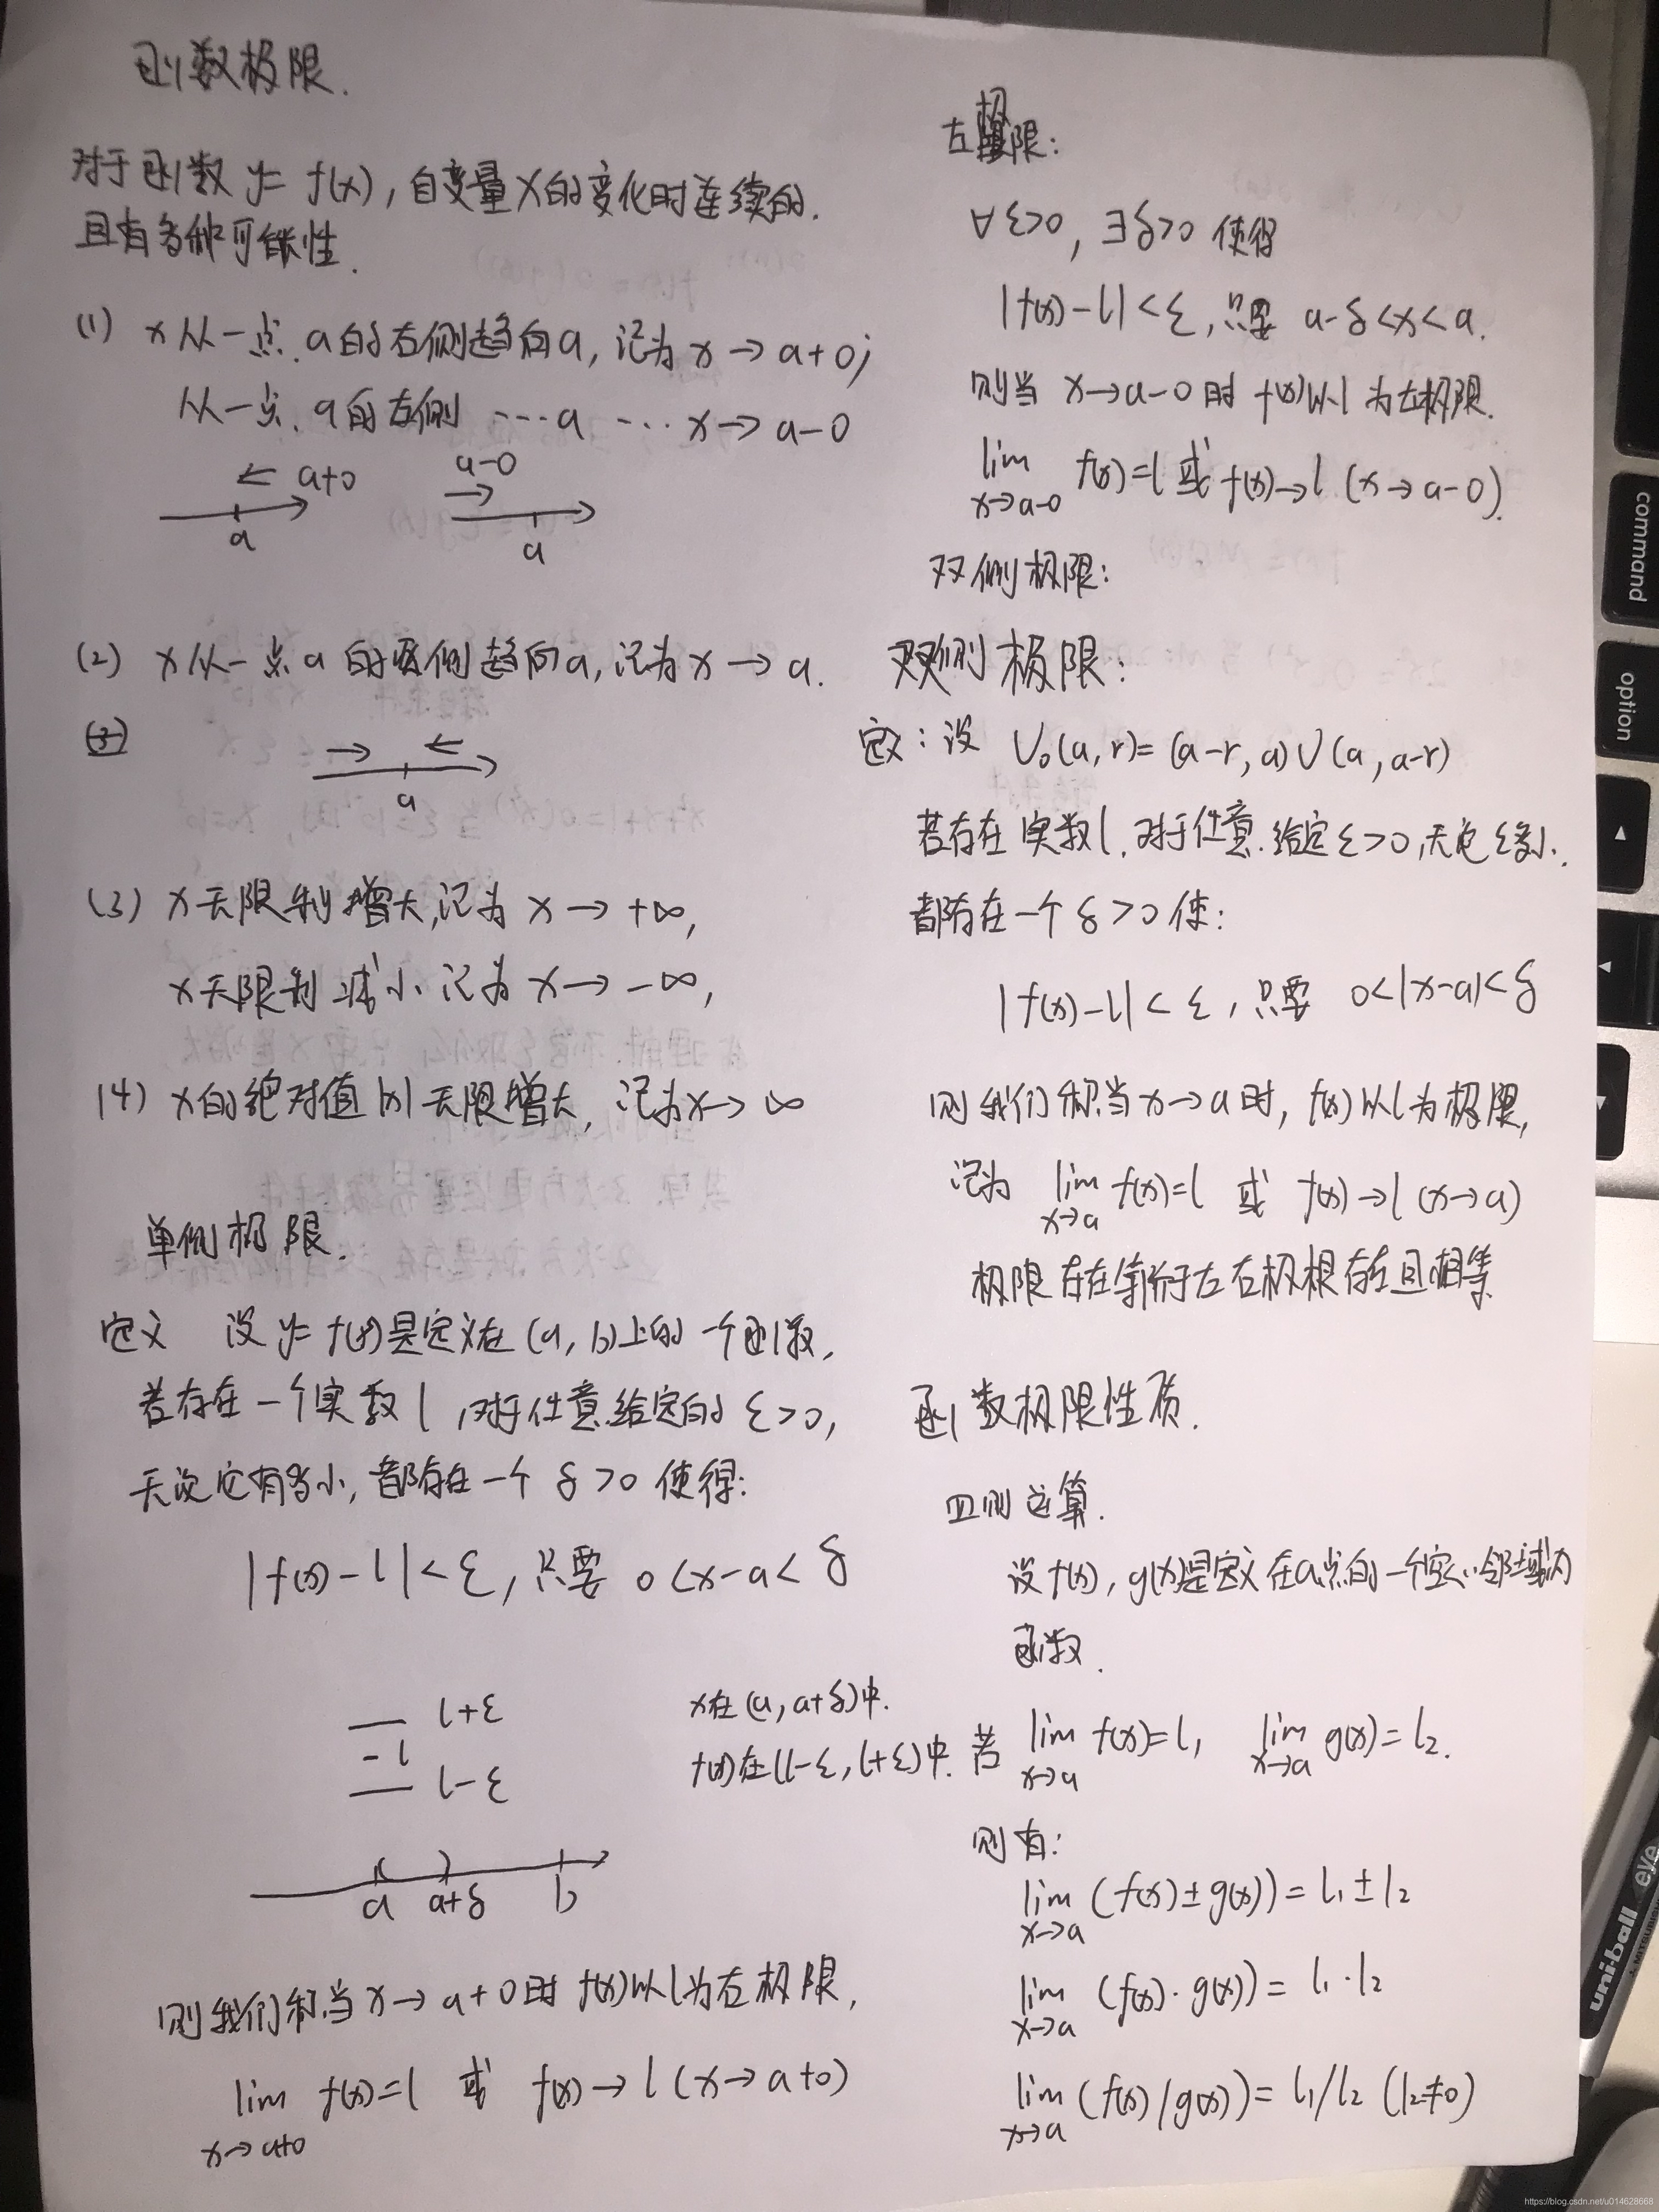 函数极限.
对于函数 y= f(x), 自变量x的变化时连续的.
且有多种可能性.
(1) x从一点a的右侧趋向a, 记为 x→a+0;
从一点a的左侧 ---a --- x→a-0
← a+0
a
a-0
→
a
(2) x从一点a的两侧趋向a, 记为 x→a.
(3)
→ ←
a
(3) x无限制增大,记为 x→+∞,
x无限制减小 记为 x→-∞,
(4) x的绝对值|x|无限增大, 记为x→∞
单侧极限.
定义 设 y= f(x)是定义在(a, b)上的一个函数,
若存在一个实数l,对于任意给定的 ε>0,
无论它有多小, 都存在一个 δ>0 使得:
|f(x)-l|<ε, 只要 0<x-a<δ
l+ε
-l
l-ε
x在(a, a+δ)中.
f(x)在(l-ε, l+ε)中.
a a+δ b
则我们称当x→a+0时 f(x)以l为右极限,
lim f(x)=l 或 f(x)→l (x→a+0)
x→a+0
左极限:
∀ε>0, ∃δ>0 使得
|f(x)-l|<ε, 只要 a-δ<x<a.
则当 x→a-0时 f(x)以l为左极限.
lim f(x)=l 或 f(x)→l (x→a-0).
x→a-0
双侧极限:
双侧极限:
定义: 设 U₀(a, r)= (a-r, a)∪(a, a-r)
若存在实数l, 对于任意给定ε>0,无论ε多小.
都存在一个δ>0使:
|f(x)-l|<ε, 只要 0<|x-a|<δ
则我们称当x→a时, f(x)以l为极限,
记为 lim f(x)=l 或 f(x)→l (x→a)
x→a
极限存在等价于左右极根存在且相等
函数极限性质.
四则运算.
设f(x), g(x)是定义在a点的一个空心邻域内
函数.
若 lim f(x)=l₁ lim g(x)=l₂.
x→a x→a
则有:
lim (f(x)±g(x))= l₁±l₂
x→a
lim (f(x)·g(x))= l₁·l₂
x→a
lim (f(x)/g(x))= l₁/l₂ (l₂≠0)
x→a
command
option
uni-ball eye
https://blog.csdn.net/u014628668